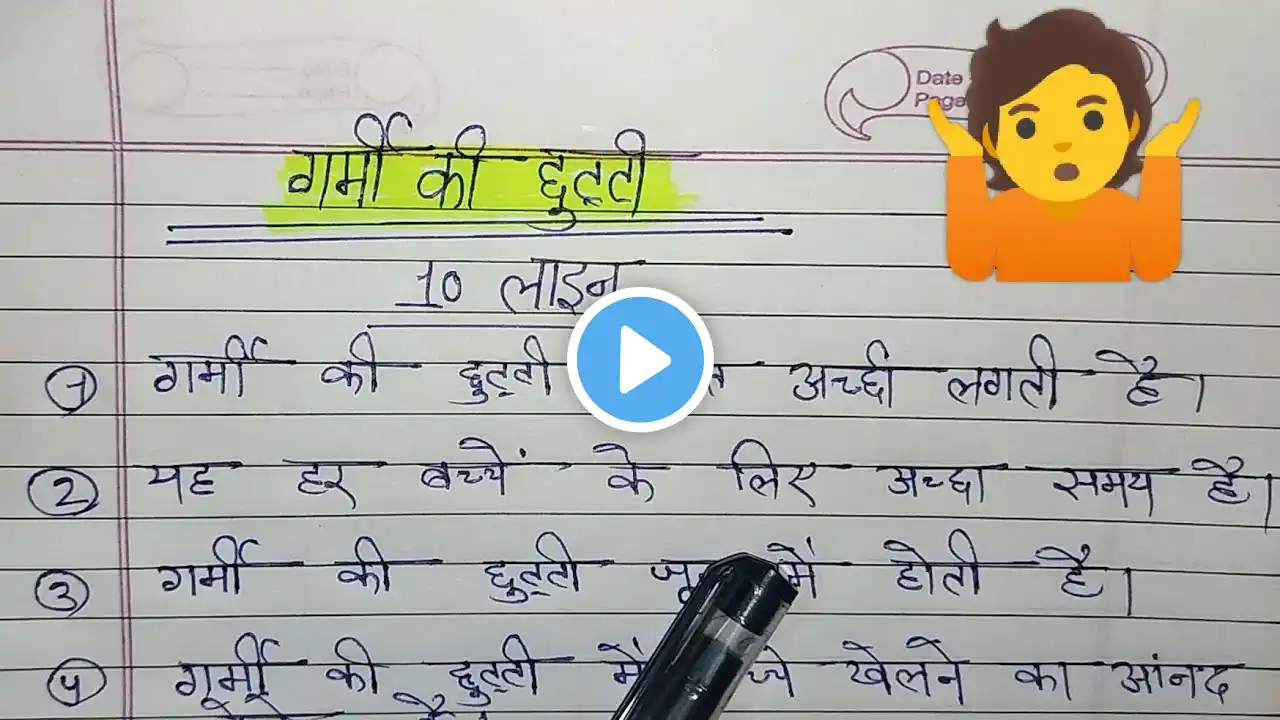 Date
Page
गर्मी की छुट्टी
10 लाइन
1 गर्मी की छुट्टी अच्छी लगती है।
2 यह हर बच्चें के लिए अच्छा समय है।
3 गर्मी की छुट्टी में होती है।
4 गर्मी की छुट्टी खेलने का आंनद